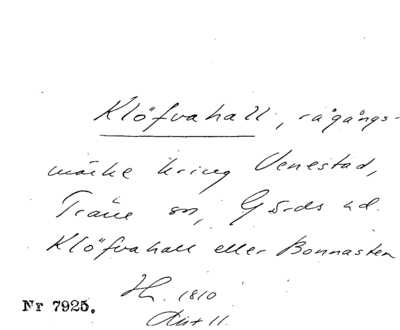 Klöfvahall, rågångs-
märke kring Venestad,
Träne sn, Gärds hd.
Klöfvahall eller Bonnasten
1810
Nr 7925.